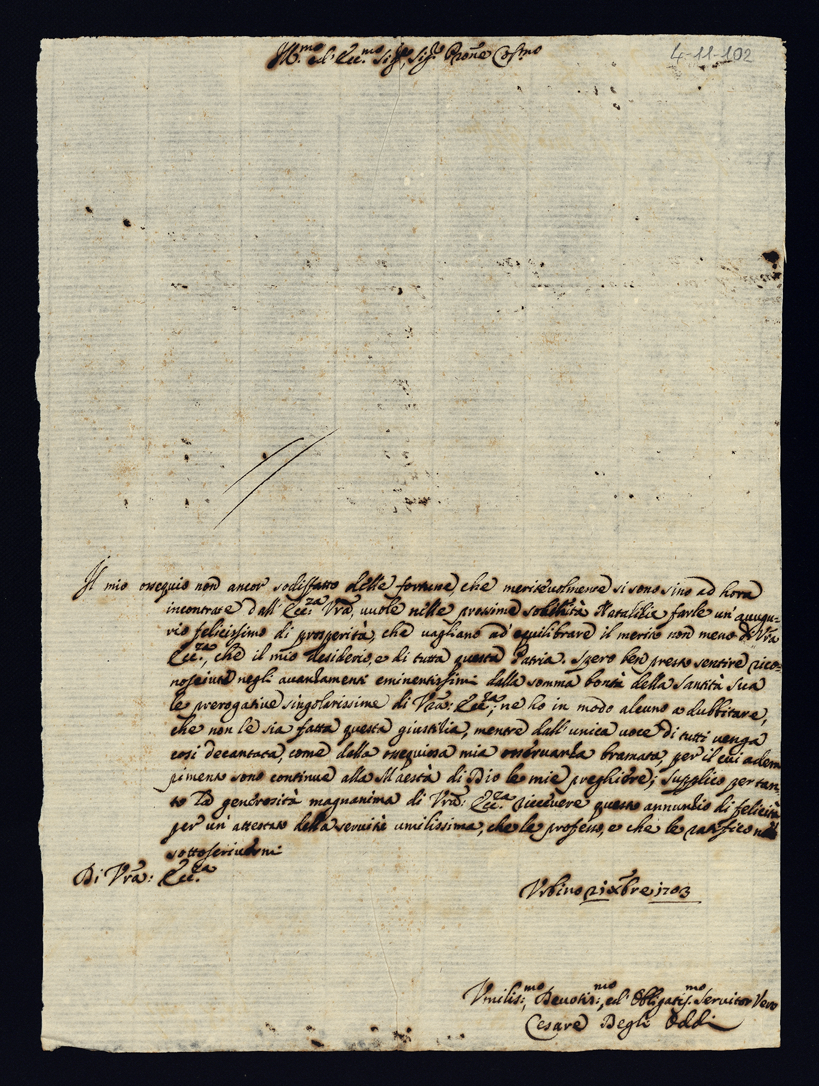 Ill.mo ed Ecc.mo Sig.re, Sig.re Prone Col.mo
4-11-102
Il mio ossequio non ancor sodisfatto delle fortune, che meriteuolmente si sono sino ad hora
incontrate dall' Ecc.za Vra, vuole nelle prossime solennità Natalizie farle un' augu-
rio felicissimo di prosperità, che vagliano ad' equilibrare il merito non meno di Vra
Ecc.za, che il mio desiderio, e di tutta questa Patria. Spero ben presto sentire rico-
nosciute negli auanzamenti eminentissimi dalla somma bontà della Santità Sua
le prerogatiue singolarissime di Vra: Ecc.za; ne ho in modo alcuno a dubbitare,
che non le sia fatta questa giustitia, mentre dall' unica voce di tutti venga
cosi decantata, come dalla ossequiosa mia osseruanza bramata, per il cui adem
pimento sono continue alla Maestà di Dio le mie preghiere; Supplico per tan-
to la generosità magnanima di Vra: Ecc.za riceuere questo annunzio di felicità
per un' attestato della seruitù umilissima, che le professo, e che le ratifico nel
sottoscriuermi
Di Vra: Ecc.za
Vrbino 21 Xbre 1703
Vmilis.mo, Deuotis.mo, ed' Obligatis.mo Seruitor Vero
Cesare Degli Oddi